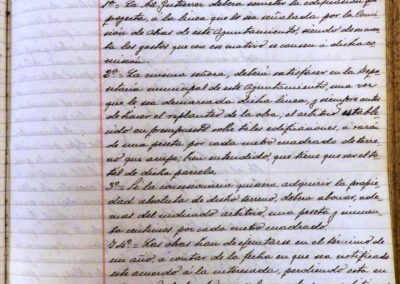 1ª = La Sra Gutierrez deberá someter la edificacion que
proyecta, a la linea que le sea señalada por la Comi
sion de obras de este Ayuntamiento, siendo de cuen
ta los gastos que con ese motivo se causen a dicha co
mision.
2ª = La misma señora, deberá satisfacer en la Depo
sitaria municipal de este Ayuntamiento, una vez
que le sea demarcada dicha linea, y siempre antes
de hacer el replanteo de la obra, el arbitrio estable
cido en presupuesto sobre tales edificaciones, a razon
de una peseta por cada metro cuadrado de terre
no que ocupe; bien entendido, que tiene que ser el to
tal de dicha parcela.
3ª = Si la concesionaria quisiera adquirir la propie
dad absoluta de dicho terreno, deberá abonar, ade
mas del indicado arbitrio, una peseta y cincuen
ta centimos por cada metro cuadrado.
Y 4ª = Las obras han de ejecutarse en el término de
un año, a contar de la fecha en que sea notificado
este acuerdo á la interesada, perdiendo esta en